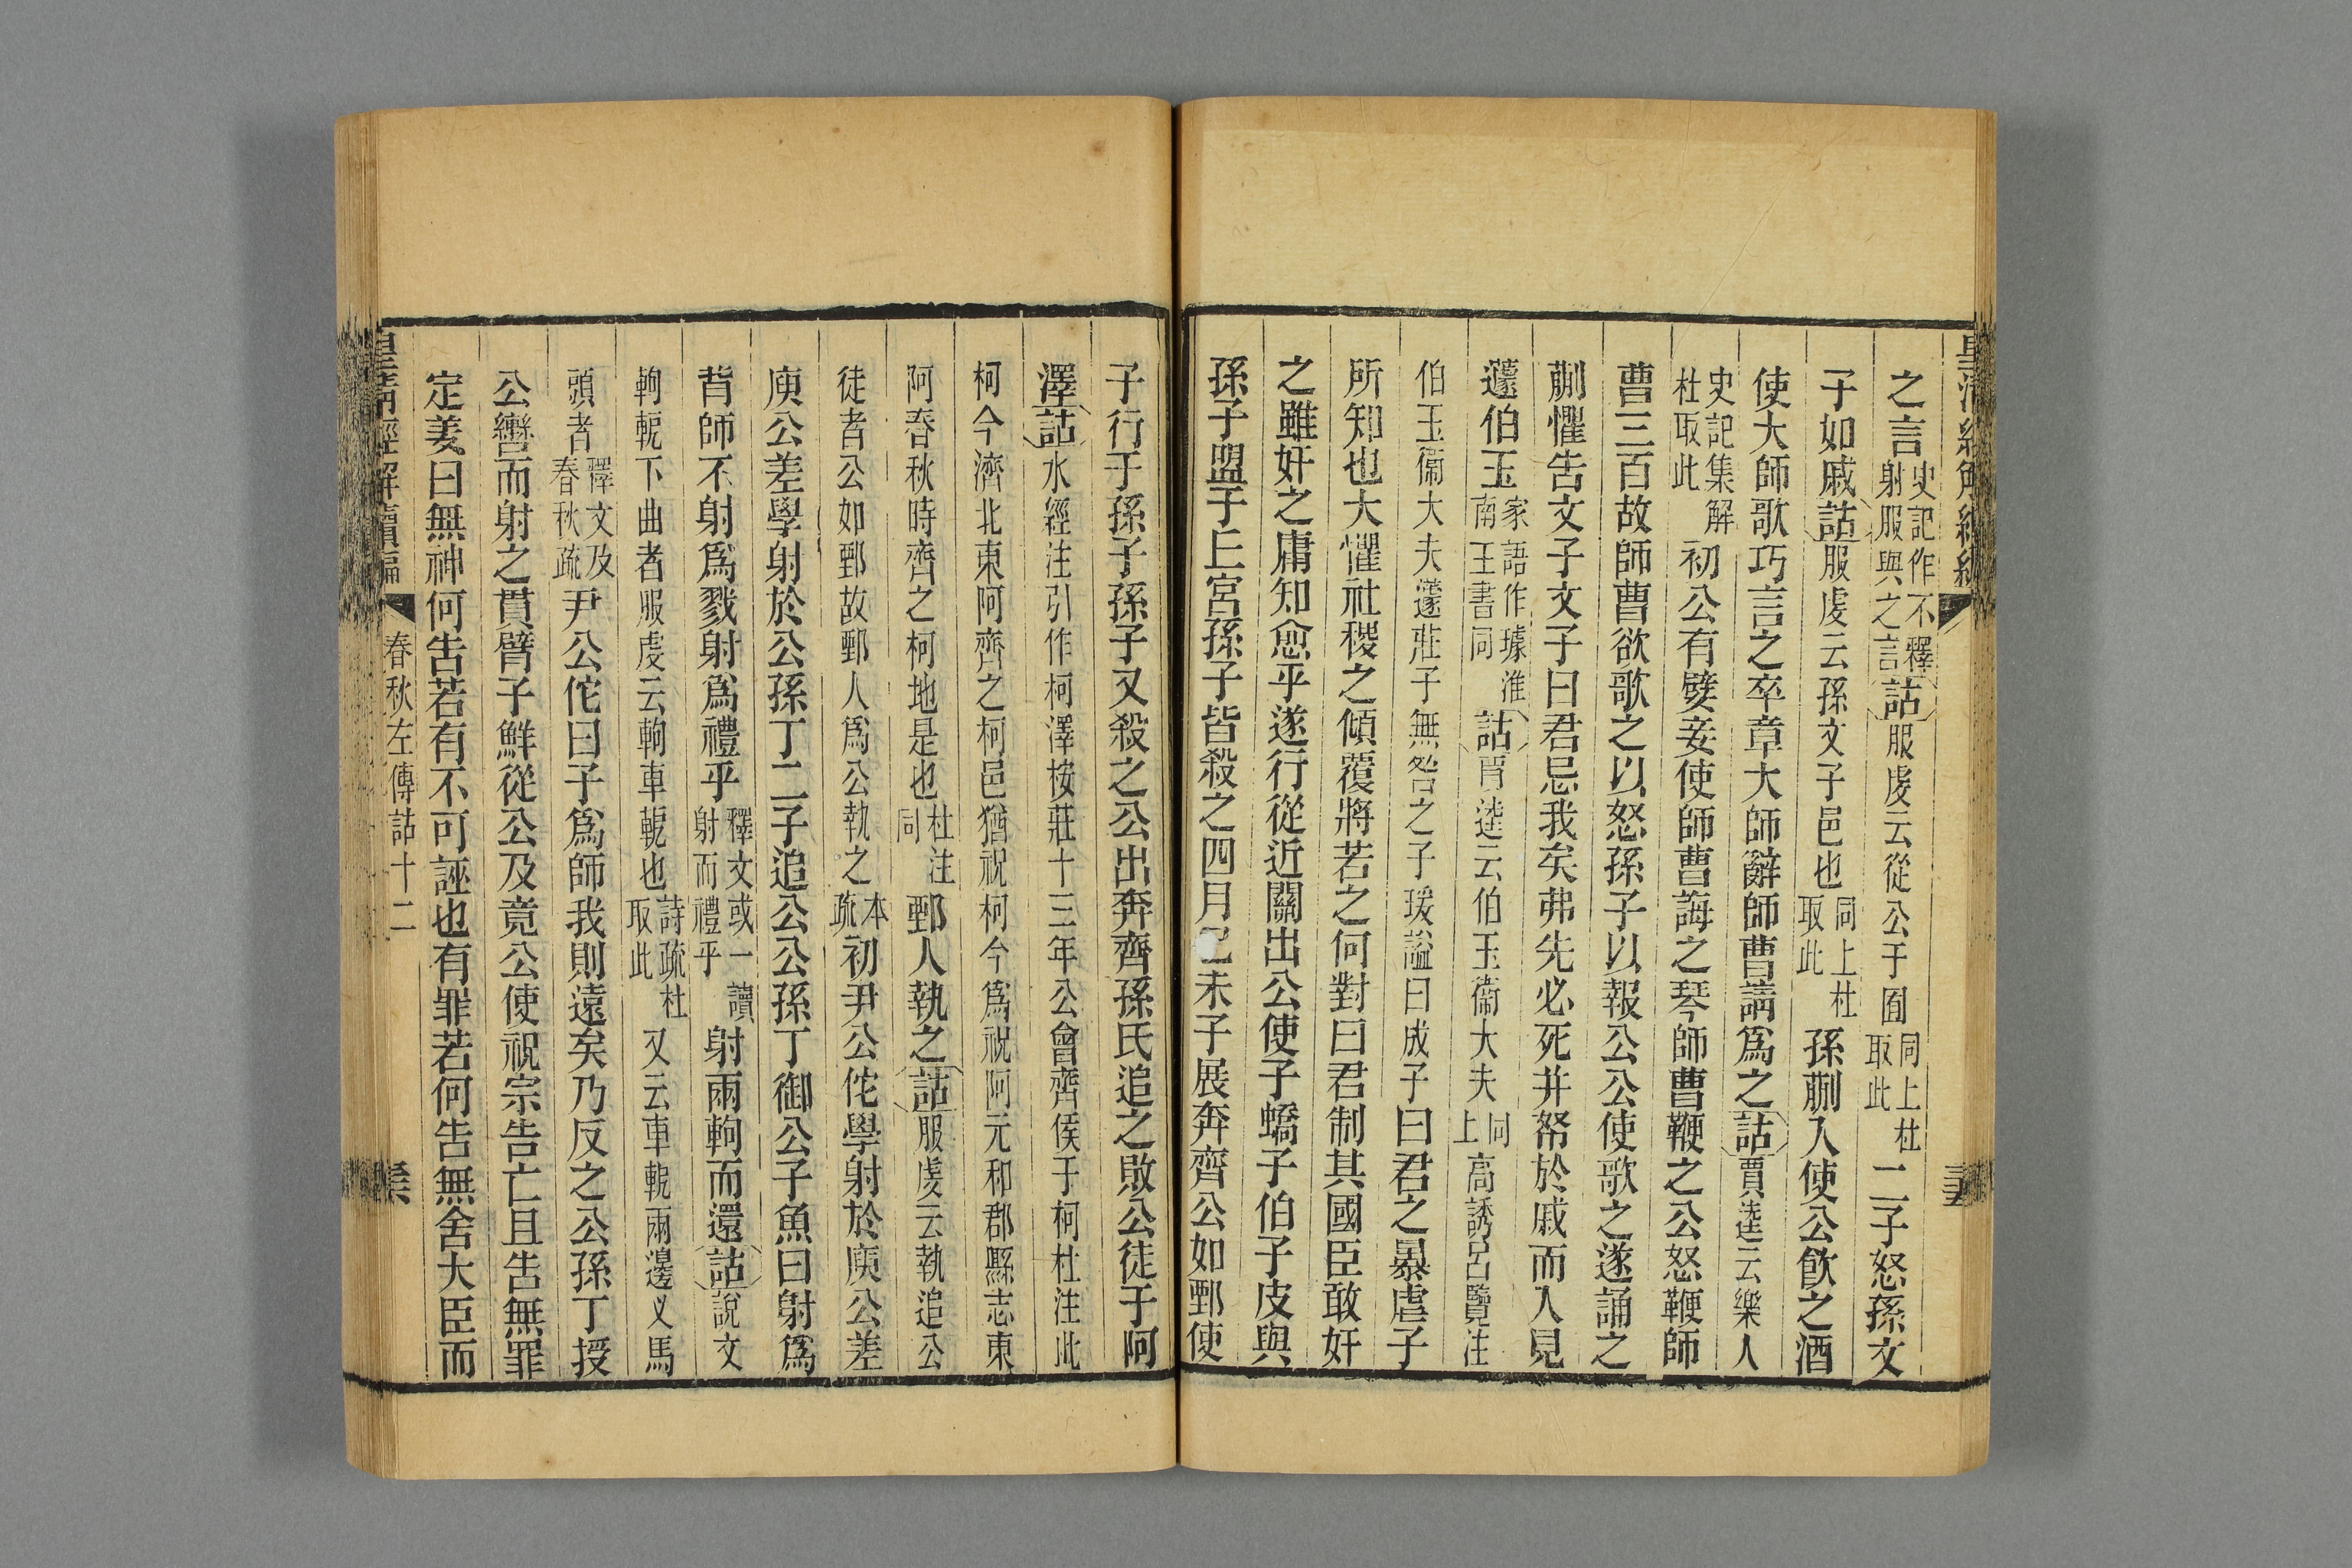 之言史記作不釋射服與之言詁服虔云從公于囿同上杜取此二子怒孫文
子如戚詁服虔云孫文子邑也同上杜取此孫蒯入使公飮之酒
使大師歌巧言之卒章大師辭師曹請爲之詁賈逵云樂人
史記集解杜取此初公有嬖妾使師曹誨之琴師曹鞭之公怒鞭師
曹三百故師曹欲歌之以怒孫子以報公公使歌之遂誦之
蒯懼告文子文子曰君忌我矣弗先必死并帑於戚而入見
蘧伯玉家語作璩淮南王書同詁賈逵云伯玉衞大夫同上高誘呂覽注
伯玉衞大夫蘧莊子無咎之子瑗謚曰成子曰君之暴虐子
所知也大懼社稷之傾覆將若之何對曰君制其國臣敢奸
之雖奸之庸知愈乎遂行從近關出公使子蟜子伯子皮與
孫子盟于丘宮孫子皆殺之四月己未子展奔齊公如鄄使
子行于孫子孫子又殺之公出奔齊孫氏追之敗公徒于阿
澤詁水經注引作柯澤桉莊十三年公會齊侯于柯杜注此
柯今濟北東阿齊之柯邑猶祝柯今爲祝阿元和郡縣志東
阿春秋時齊之柯地是也杜注同鄄人執之詁服虔云執追公
徒者公如鄄故鄄人爲公執之本疏初尹公佗學射於庾公差
庾公差學射於公孫丁二子追公公孫丁御公子魚曰射爲
背師不射爲戮射爲禮乎釋文或一讀射而禮乎射兩軥而還詁說文
軥軶下曲者服虔云軥車軶也詩疏杜取此又云車軶兩邊乂馬
頸者釋文及春秋疏尹公佗曰子爲師我則遠矣乃反之公孫丁授
公轡而射之貫臂子鮮從公及竟公使祝宗告亡且告無罪
定姜曰無神何告若有不可誣也有罪若何告無舍大臣而
皇淸經解續編 春秋左傳詁十二